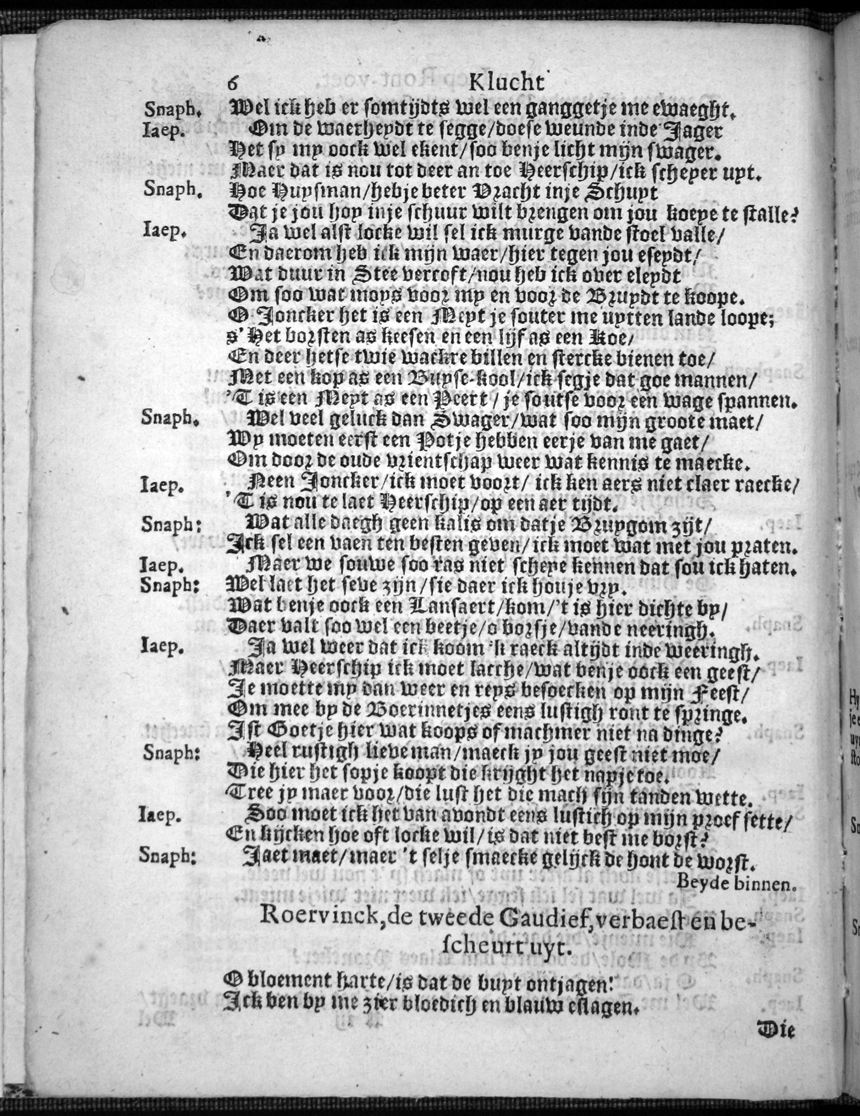 6 Klucht
Snaph. Wel ick heb er somtijdts wel een ganggetje me ewaeght.
Iaep. Om de waerheydt te segge/doese weunde inde Jager
Het sy my oock wel ekent/soo benje licht mijn swager.
Maer dat is nou tot deer an toe Heerschip/ick scheper uyt.
Snaph. Hoe Huysman/hebje beter Vracht inje Schuyt
Dat je jou hoy inje schuur wilt brengen om jou koeye te stalle?
Iaep. Ja wel alst locke wil sel ick murge vande stoel valle/
En daerom heb ick mijn waer/hier tegen jou eseydt/
Wat duur in Stee vercoft/nou heb ick over eleydt
Om soo wat moys voor my en voor de Bruydt te koope.
O Joncker het is een Meyt je souter me uytten lande loope;
s'Het borsten as keesen en een lijf as een Koe/
En deer hetse twie wackre billen en stercke bienen toe/
Met een kop as een Buyse-kool/ick segje dat goe mannen/
'T is een Meyt as een Peert/je soutse voor een wage spannen.
Snaph. Wel veel geluck dan Swager/wat soo mijn groote maet/
Wy moeten eerst een Potje hebben eerje van me gaet/
Om door de oude vrientschap weer wat kennis te maecke.
Iaep. Neen Joncker/ick moet voort/ick ken aers niet claer raecke/
'T is nou te laet Heerschip/op een aer tijdt.
Snaph: Wat alle daegh geen kalis om datje Bruygom zijt/
Ick sel een vaen ten besten geven/ick moet wat met jou praten.
Iaep. Maer we souwe soo ras niet scheye kennen dat sou ick haten.
Snaph: Wel laet het seve zijn/sie daer ick houje vry.
Wat benje oock een Lansaert/kom/'t is hier dichte by/
Daer valt soo wel een beetje/o borsje/vande neeringh.
Iaep. Ja wel weer dat ick koom 'k raeck altijdt inde weeringh.
Maer Heerschip ick moet lacche/wat benje oock een geest/
Je moette my dan weer en reys besoecken op mijn Feest/
Om mee by de Boerinnetjes eens lustigh ront te springe.
Ist Goetje hier wat koops of machmer niet na dinge?
Snaph: Heel rustigh lieve man/maeck jy jou geest niet moe/
Die hier het sopje koopt die krijght het napje toe.
Tree jy maer voor/die lust het die mach sijn tanden wette.
Iaep. Soo moet ick het van avondt eens lustich op mijn proef sette/
En kijcken hoe oft locke wil/is dat niet best me borst?
Snaph: Jaet maet/maer 't selje smaecke gelijck de hont de worst.
Beyde binnen.
Roervinck,de tweede Gaudief,verbaest en be-
scheurt uyt.
O bloement harte/is dat de buyt ontjagen!
Ick ben by me zier bloedich en blauw eslagen.
Die